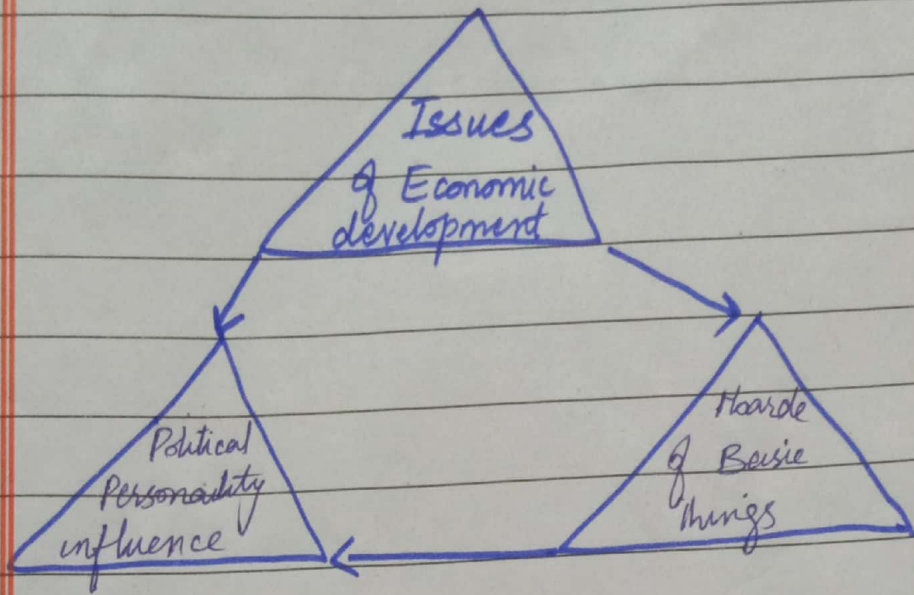 Issues
of Economic
development
Political
Personality
influence
Hoarde
of Basic
things